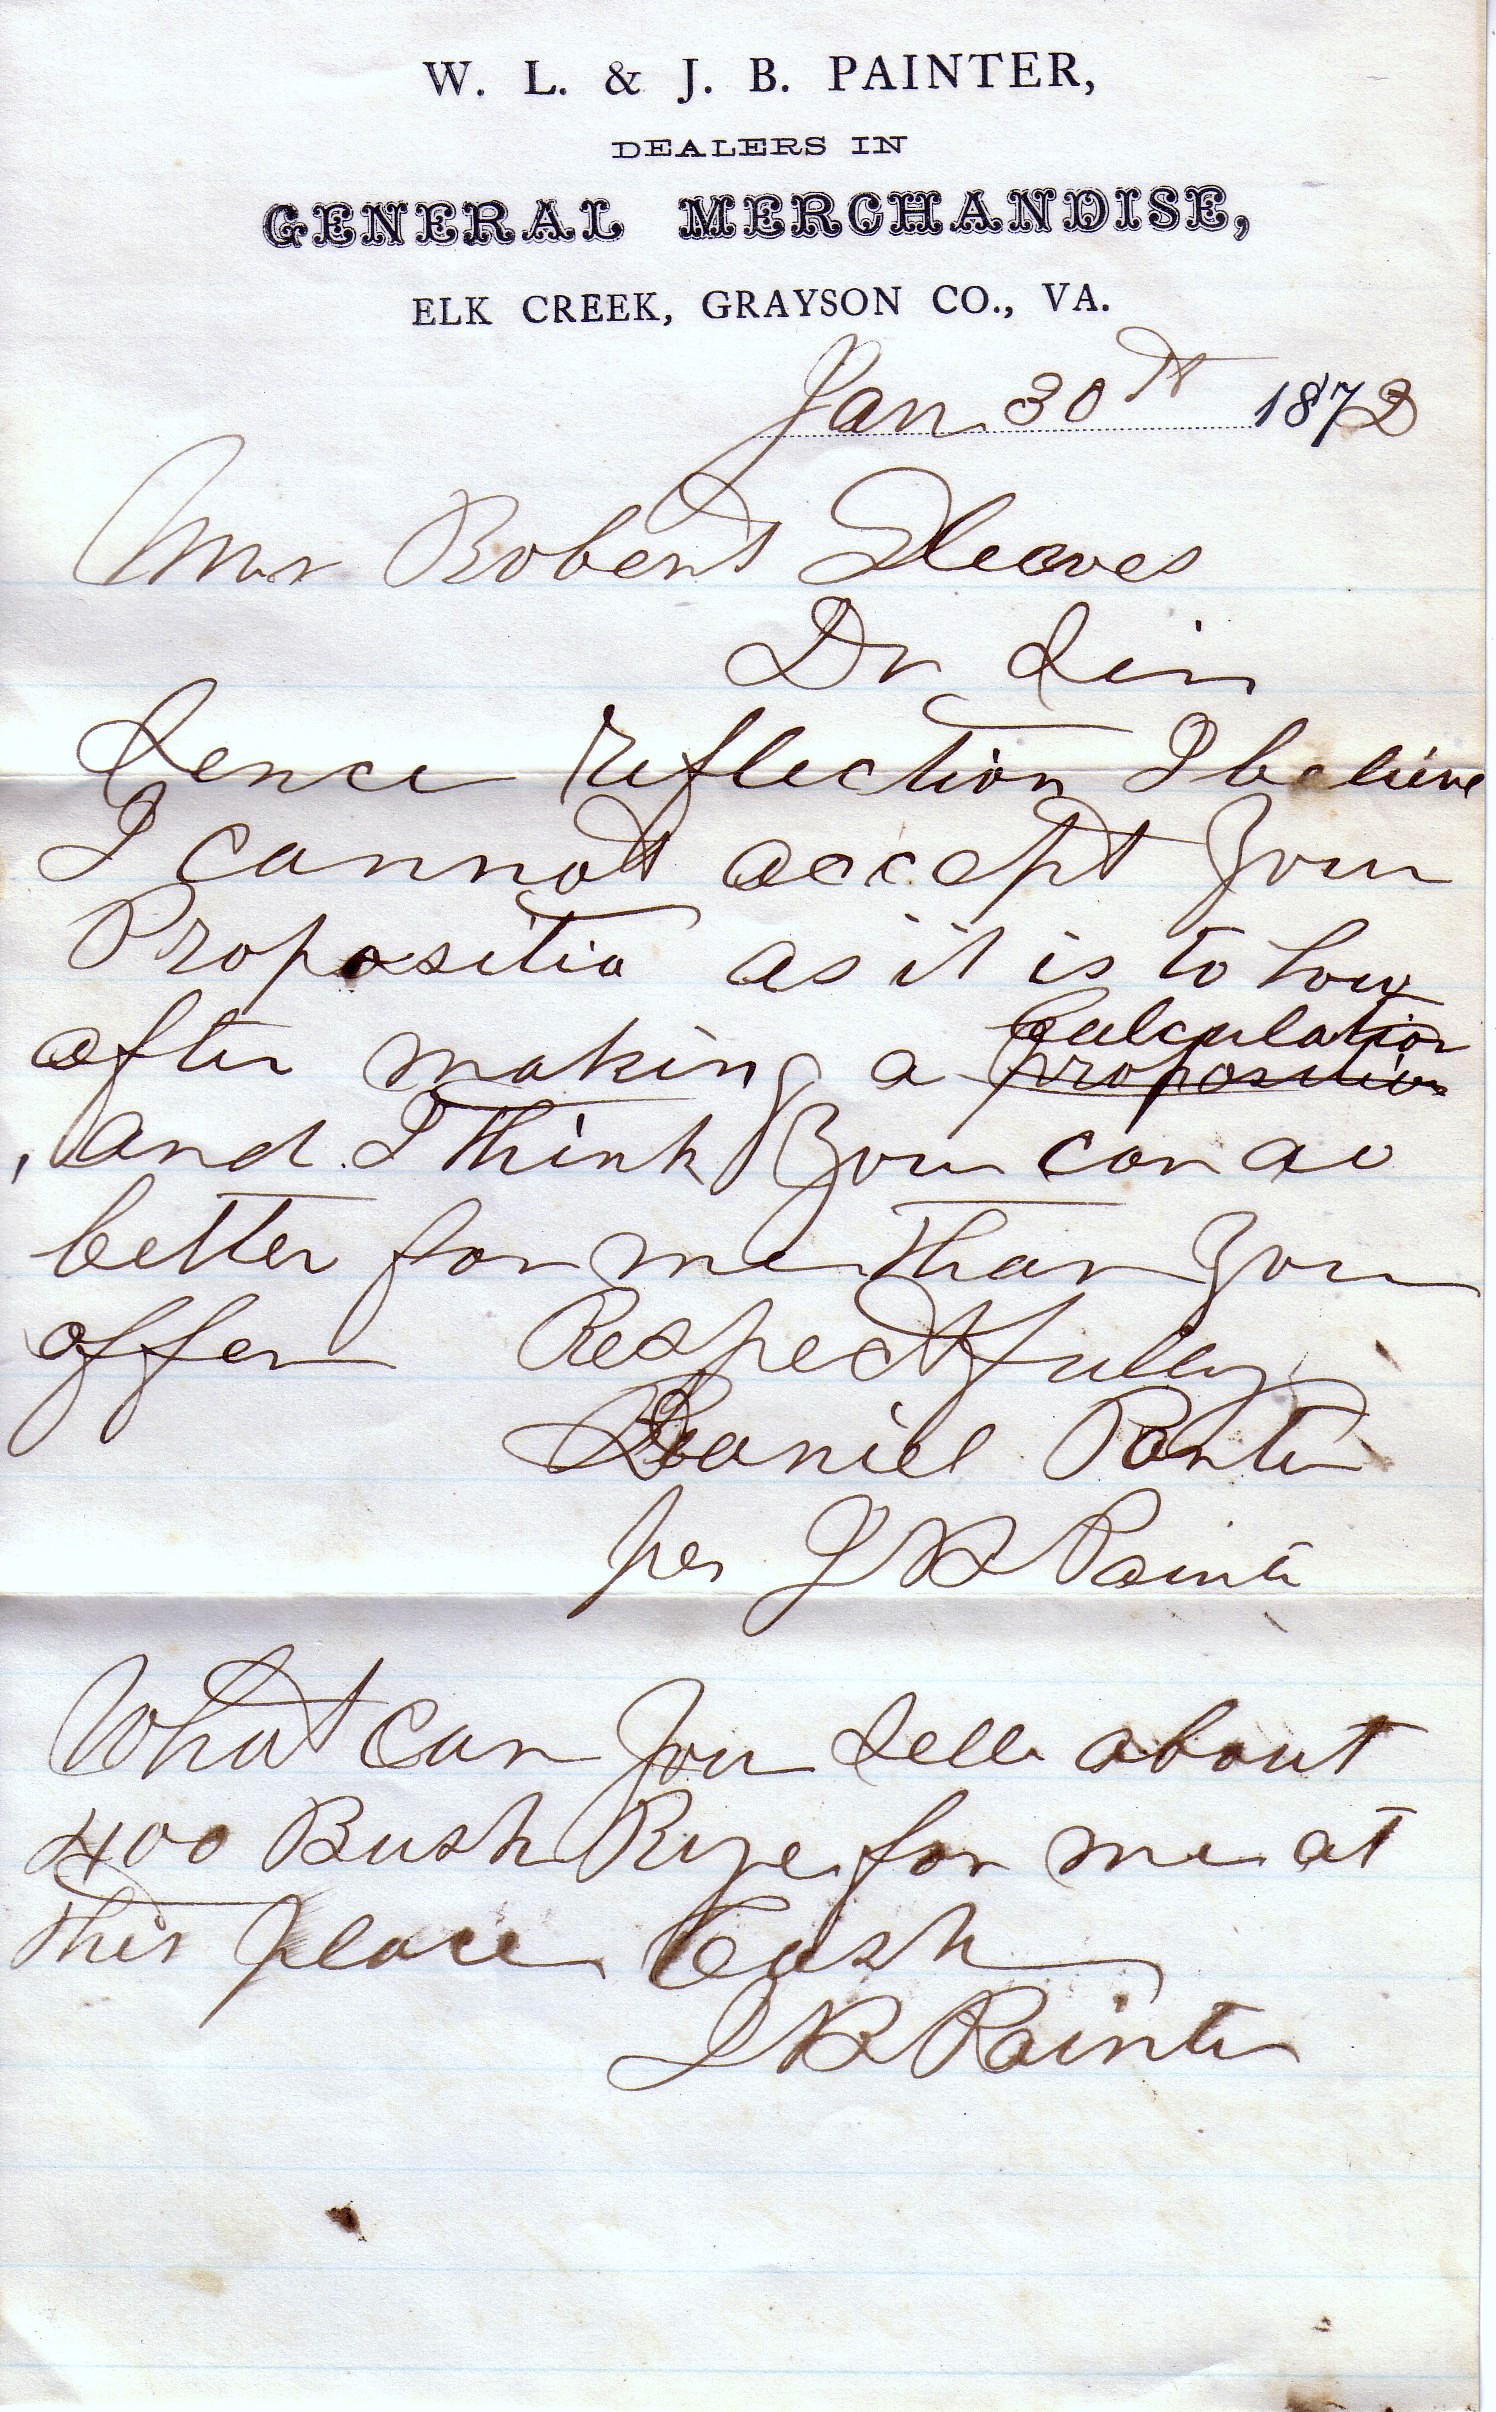 W. L. & J. B. PAINTER,
DEALERS IN
GENERAL MERCHANDISE,
ELK CREEK, GRAYSON CO., VA.
Jan 30th 1872
Mr Robert Sleaves
Dr Sir
Sence reflection I believe
I cannot accept your
Propositio as it is to low
calculation
after making a proposition
and I think you can do
better for me than you
offer Respectfully
Daniel Painter
per J B Painter
What can you sell about
400 Bush Rye for me at
this place Cash
J B Painter